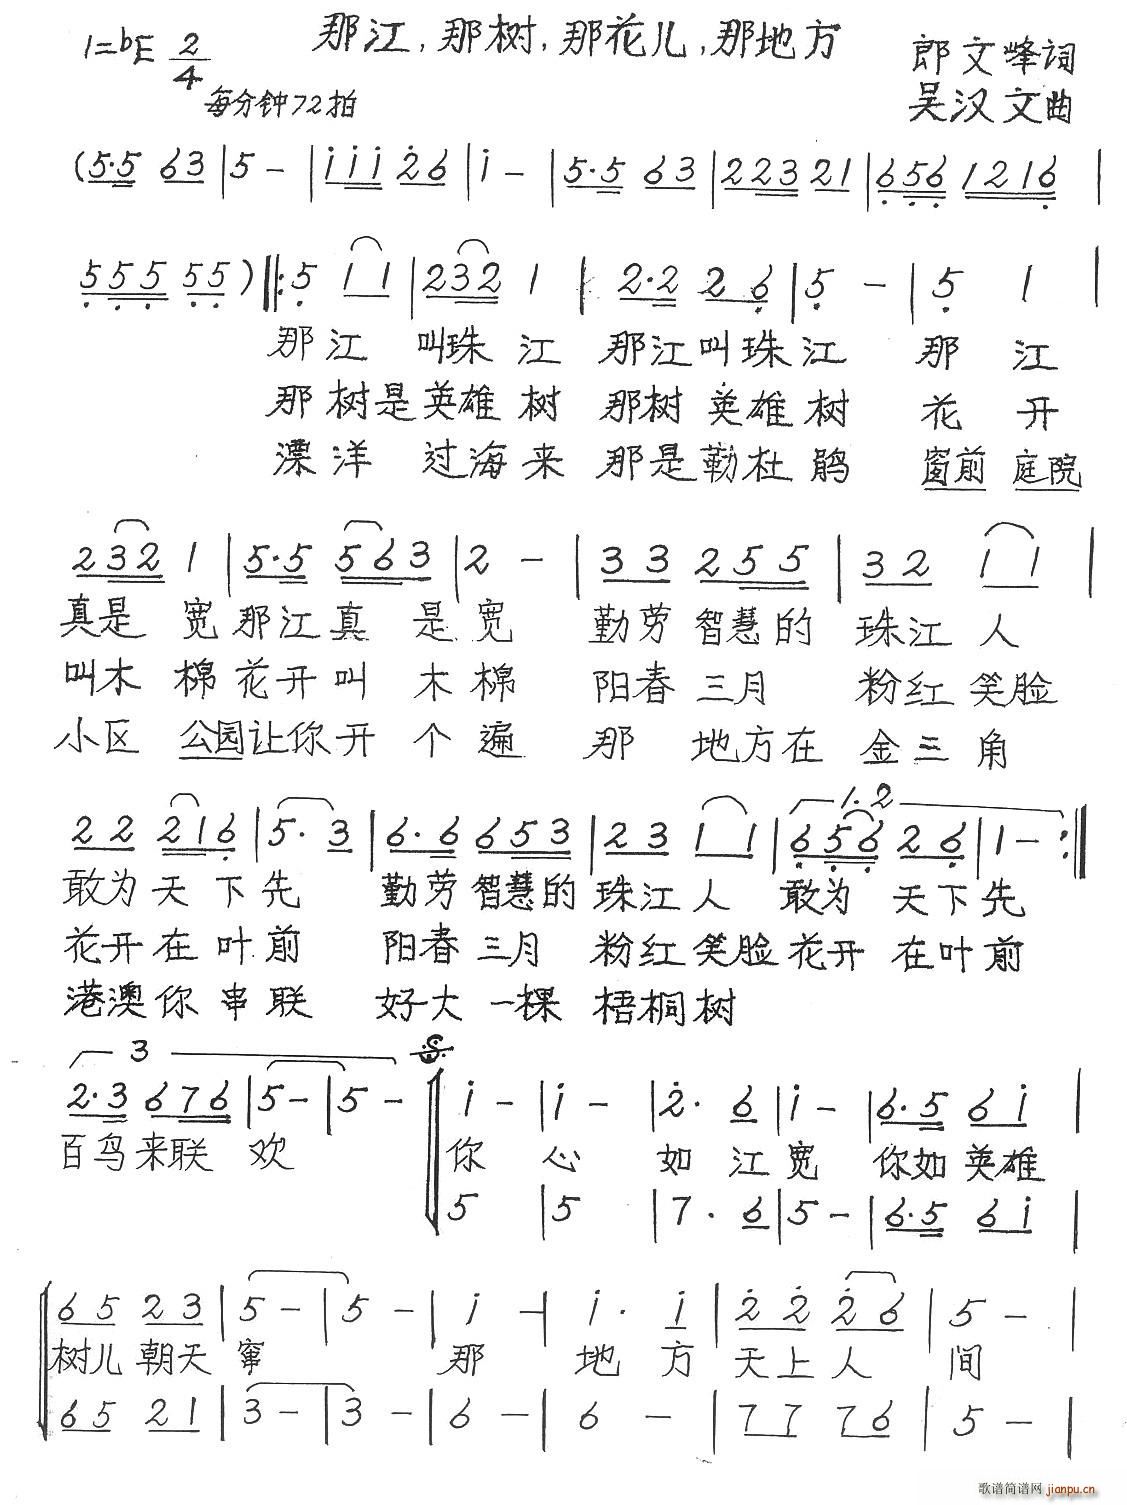 那江,那树,那花儿,那地方
1=bE 2/4
郎文峰词
每分钟72拍
吴汉文曲
(5·5 63 | 5 - | iii 26 | i - | 5·5 63 | 223 21 | 656 1216 |
555 55) ‖: 5 11 | 232 1 | 2·2 26 | 5 - | 5 1 |
那江 叫珠江 那江叫珠江 那 江
那树是英雄树 那树英雄树 花 开
漂洋 过海来 那是勒杜鹃 窗前 庭院
232 1 | 5·5 563 | 2 - | 33 255 | 32 11 |
真是 宽那江真 是宽 勤劳智慧的 珠江人
叫木 棉花开叫 木棉 阳春三月 粉红笑脸
小区 公园让你开 个遍 那 地方在 金三角
22 216 | 5· 3 | 6·6 653 | 23 11 | 1.2 656 26 | 1 - :‖
敢为天下先 勤劳智慧的 珠江人 敢为 天下先
花开在叶前 阳春三月 粉红笑脸花开 在叶前
港澳你串联 好大一棵 梧桐树
3
2·3 676 | 5 - | 5 - ‖ i - | i - | 2· 6 | i - | 6·5 6i |
百鸟来联 欢 你 心 如 江宽 你如英雄
5 | 5 | 7· 6 | 5 - | 6·5 6i |
65 23 | 5 - | 5 - | i - | i· i | 22 26 | 5 -
树儿朝天 窜 那 地 方 天上人 间
65 21 | 3 - | 3 - | 6 - 6 - | 77 76 | 5 - |
歌谱简谱网 jianpu.cn